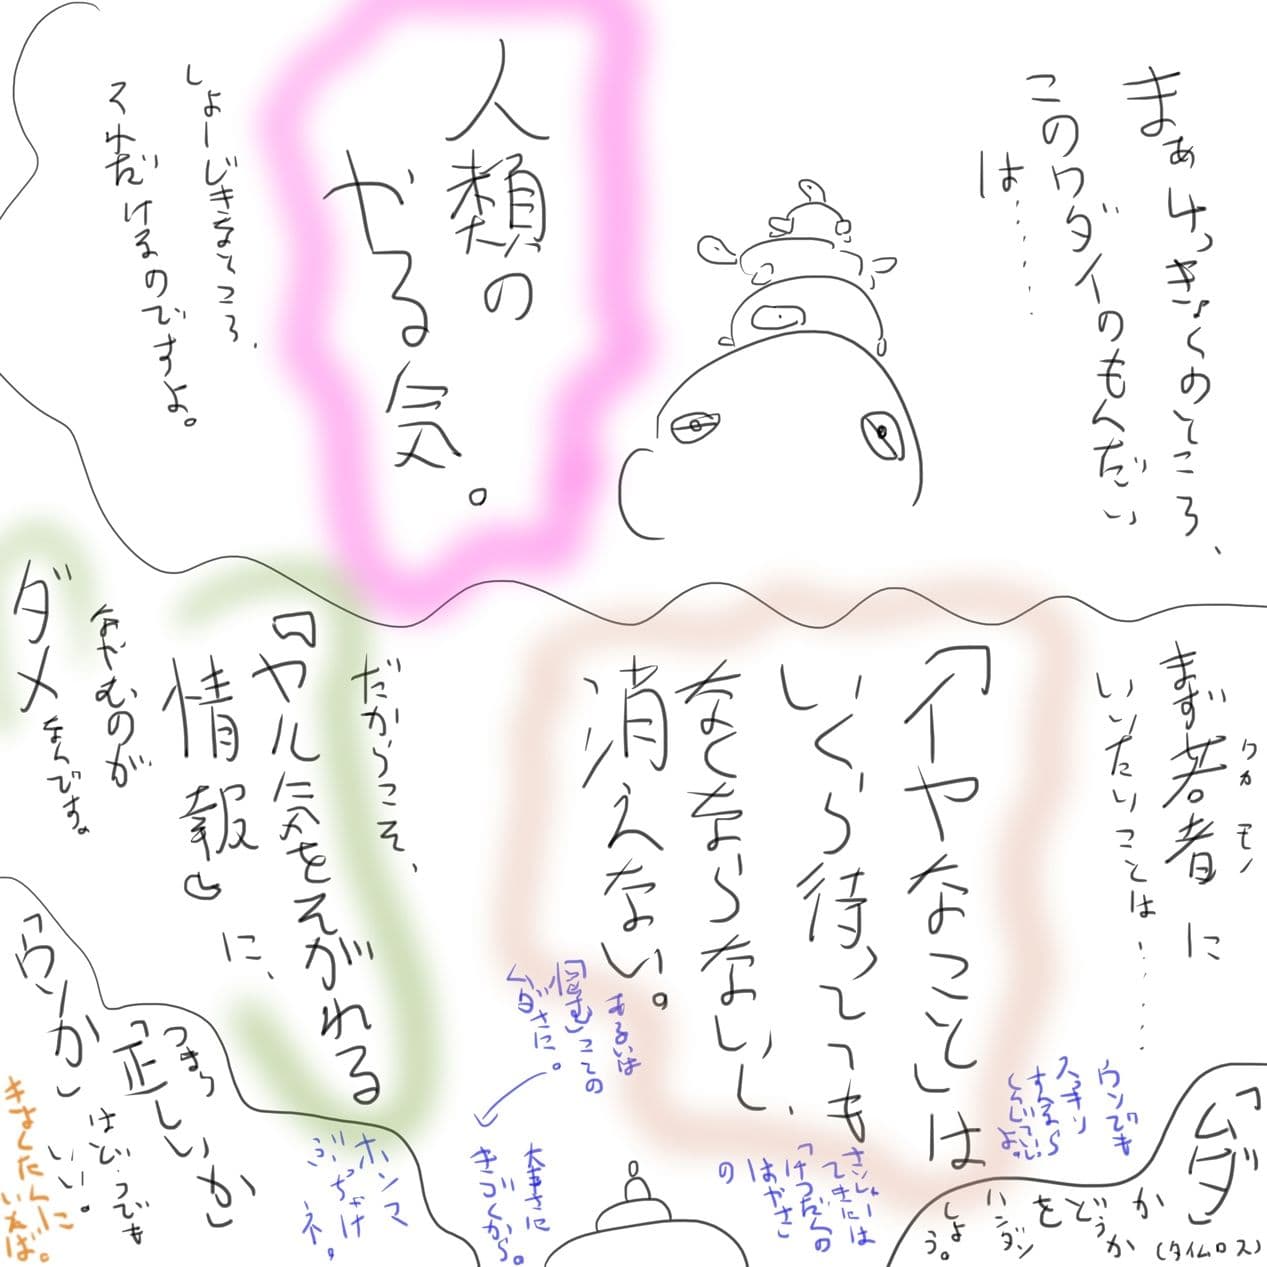 まぁけっきょくのところ、
このワダイのもんだい
は......
人類の
やる気。
しょーじきなところ、
それだけるのですよ。
まず若者に
ワカモノ
いいたいことは......
「イヤなこと」は
いくら待っても
なくならないし、
消えない。
あるいは
「悩む」ことの
ムダさに。
大事さに
きづくから。
ウソでも
スッキリ
するなら
さいしゅー
てきには
「けつだんの
はやさ
の
「ムダ」
か
どうか
を
ハンダン
しよう。
(タイムロス)
だからこそ、
『ヤル気をそがれる
情報』に、
なやむのが
ダメなんです。
ホンマ
ぶっちゃけ
ネ。
つまり
「正しいか」
「ウソか」
はどっちでも
いい。
きょくたんに
いえば。